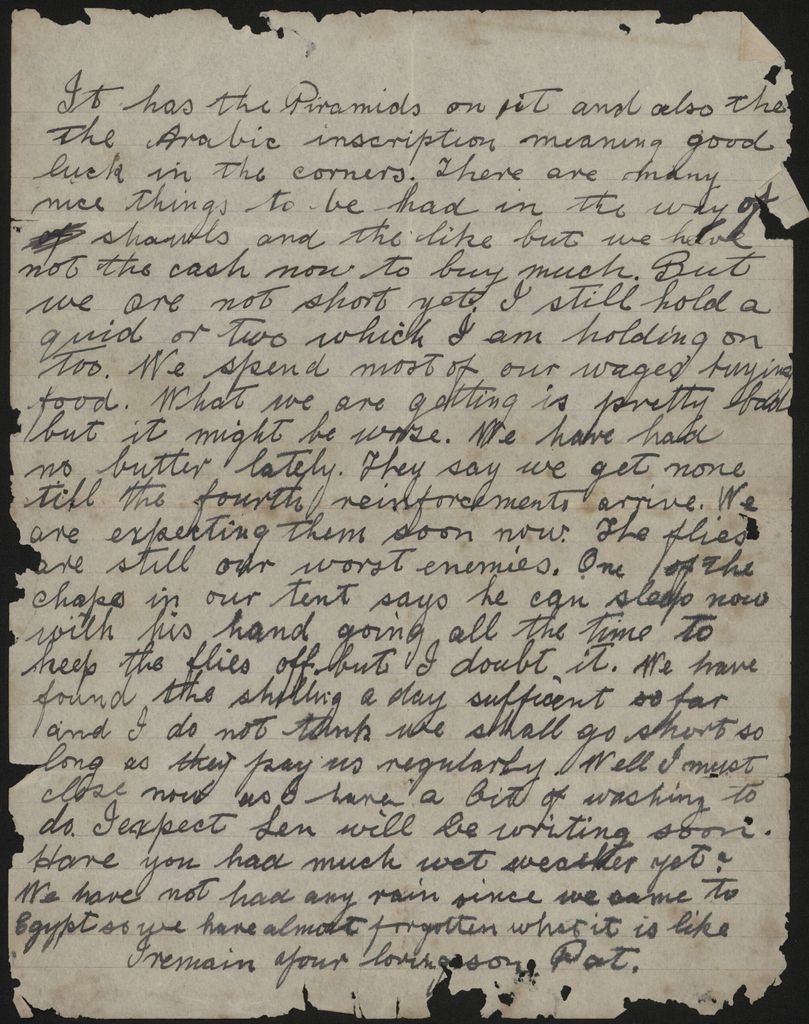 It has the Piramids on it and also the
the Arabic inscription meaning good
luck in the corners. There are many
nice things to be had in the way of
shawls and the like but we have
not the cash now to buy much. But
we are not short yet. I still hold a
quid or two which I am holding on
too. We spend most of our wages buying
food. What we are getting is pretty bad
but it might be worse. We have had
no butter lately. They say we get none
till the fourth reinforcements arrive. We
are expecting them soon now. The flies
are still our worst enemies. One of the
chaps in our tent says he can sleep now
with his hand going all the time to
keep the flies off but I doubt it. We have
found the shilling a day sufficent so far
and I do not think we shall go short so
long as they pay us regularly. Well I must
close now as I have a bit of washing to
do. I expect Len will be writing soon.
Have you had much wet weather yet?
We have not had any rain since we came to
Egypt so we have almost forgotten what it is like
I remain your loving son Pat.